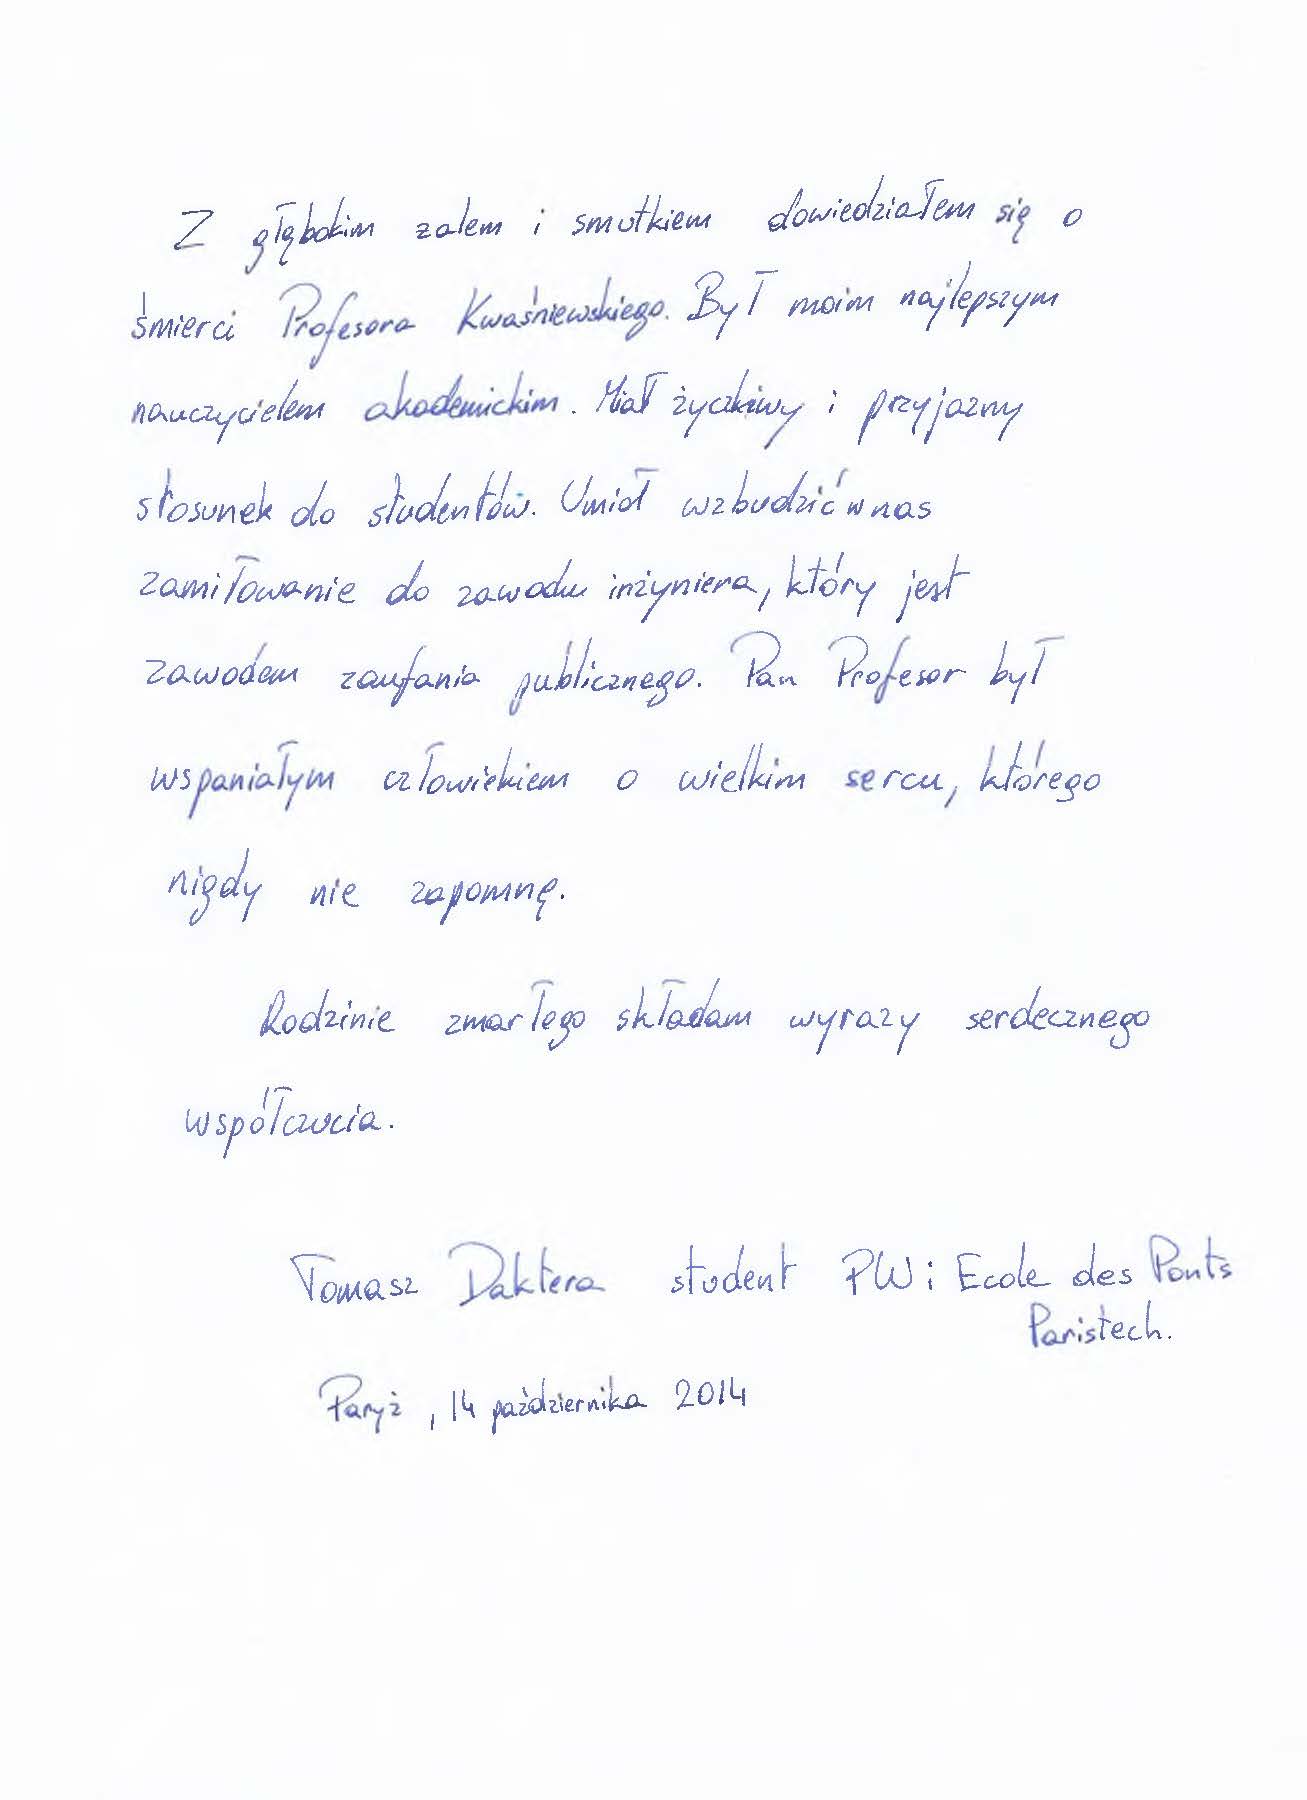 Z głębokim żalem i smutkiem dowiedziałem się o
śmierci Profesora Kwaśniewskiego. Był moim najlepszym
nauczycielem akademickim. Miał życzliwy i przyjazny
stosunek do studentów. Umiał wzbudzić w nas
zamiłowanie do zawodu inżyniera, który jest
zawodem zaufania publicznego. Pan Profesor był
wspaniałym człowiekiem o wielkim sercu, którego
nigdy nie zapomnę.
Rodzinie zmarłego składam wyrazy serdecznego
współczucia.
Tomasz Daktera student PW i Ecole des Ponts
Paristech.
Paryż, 14 października 2014